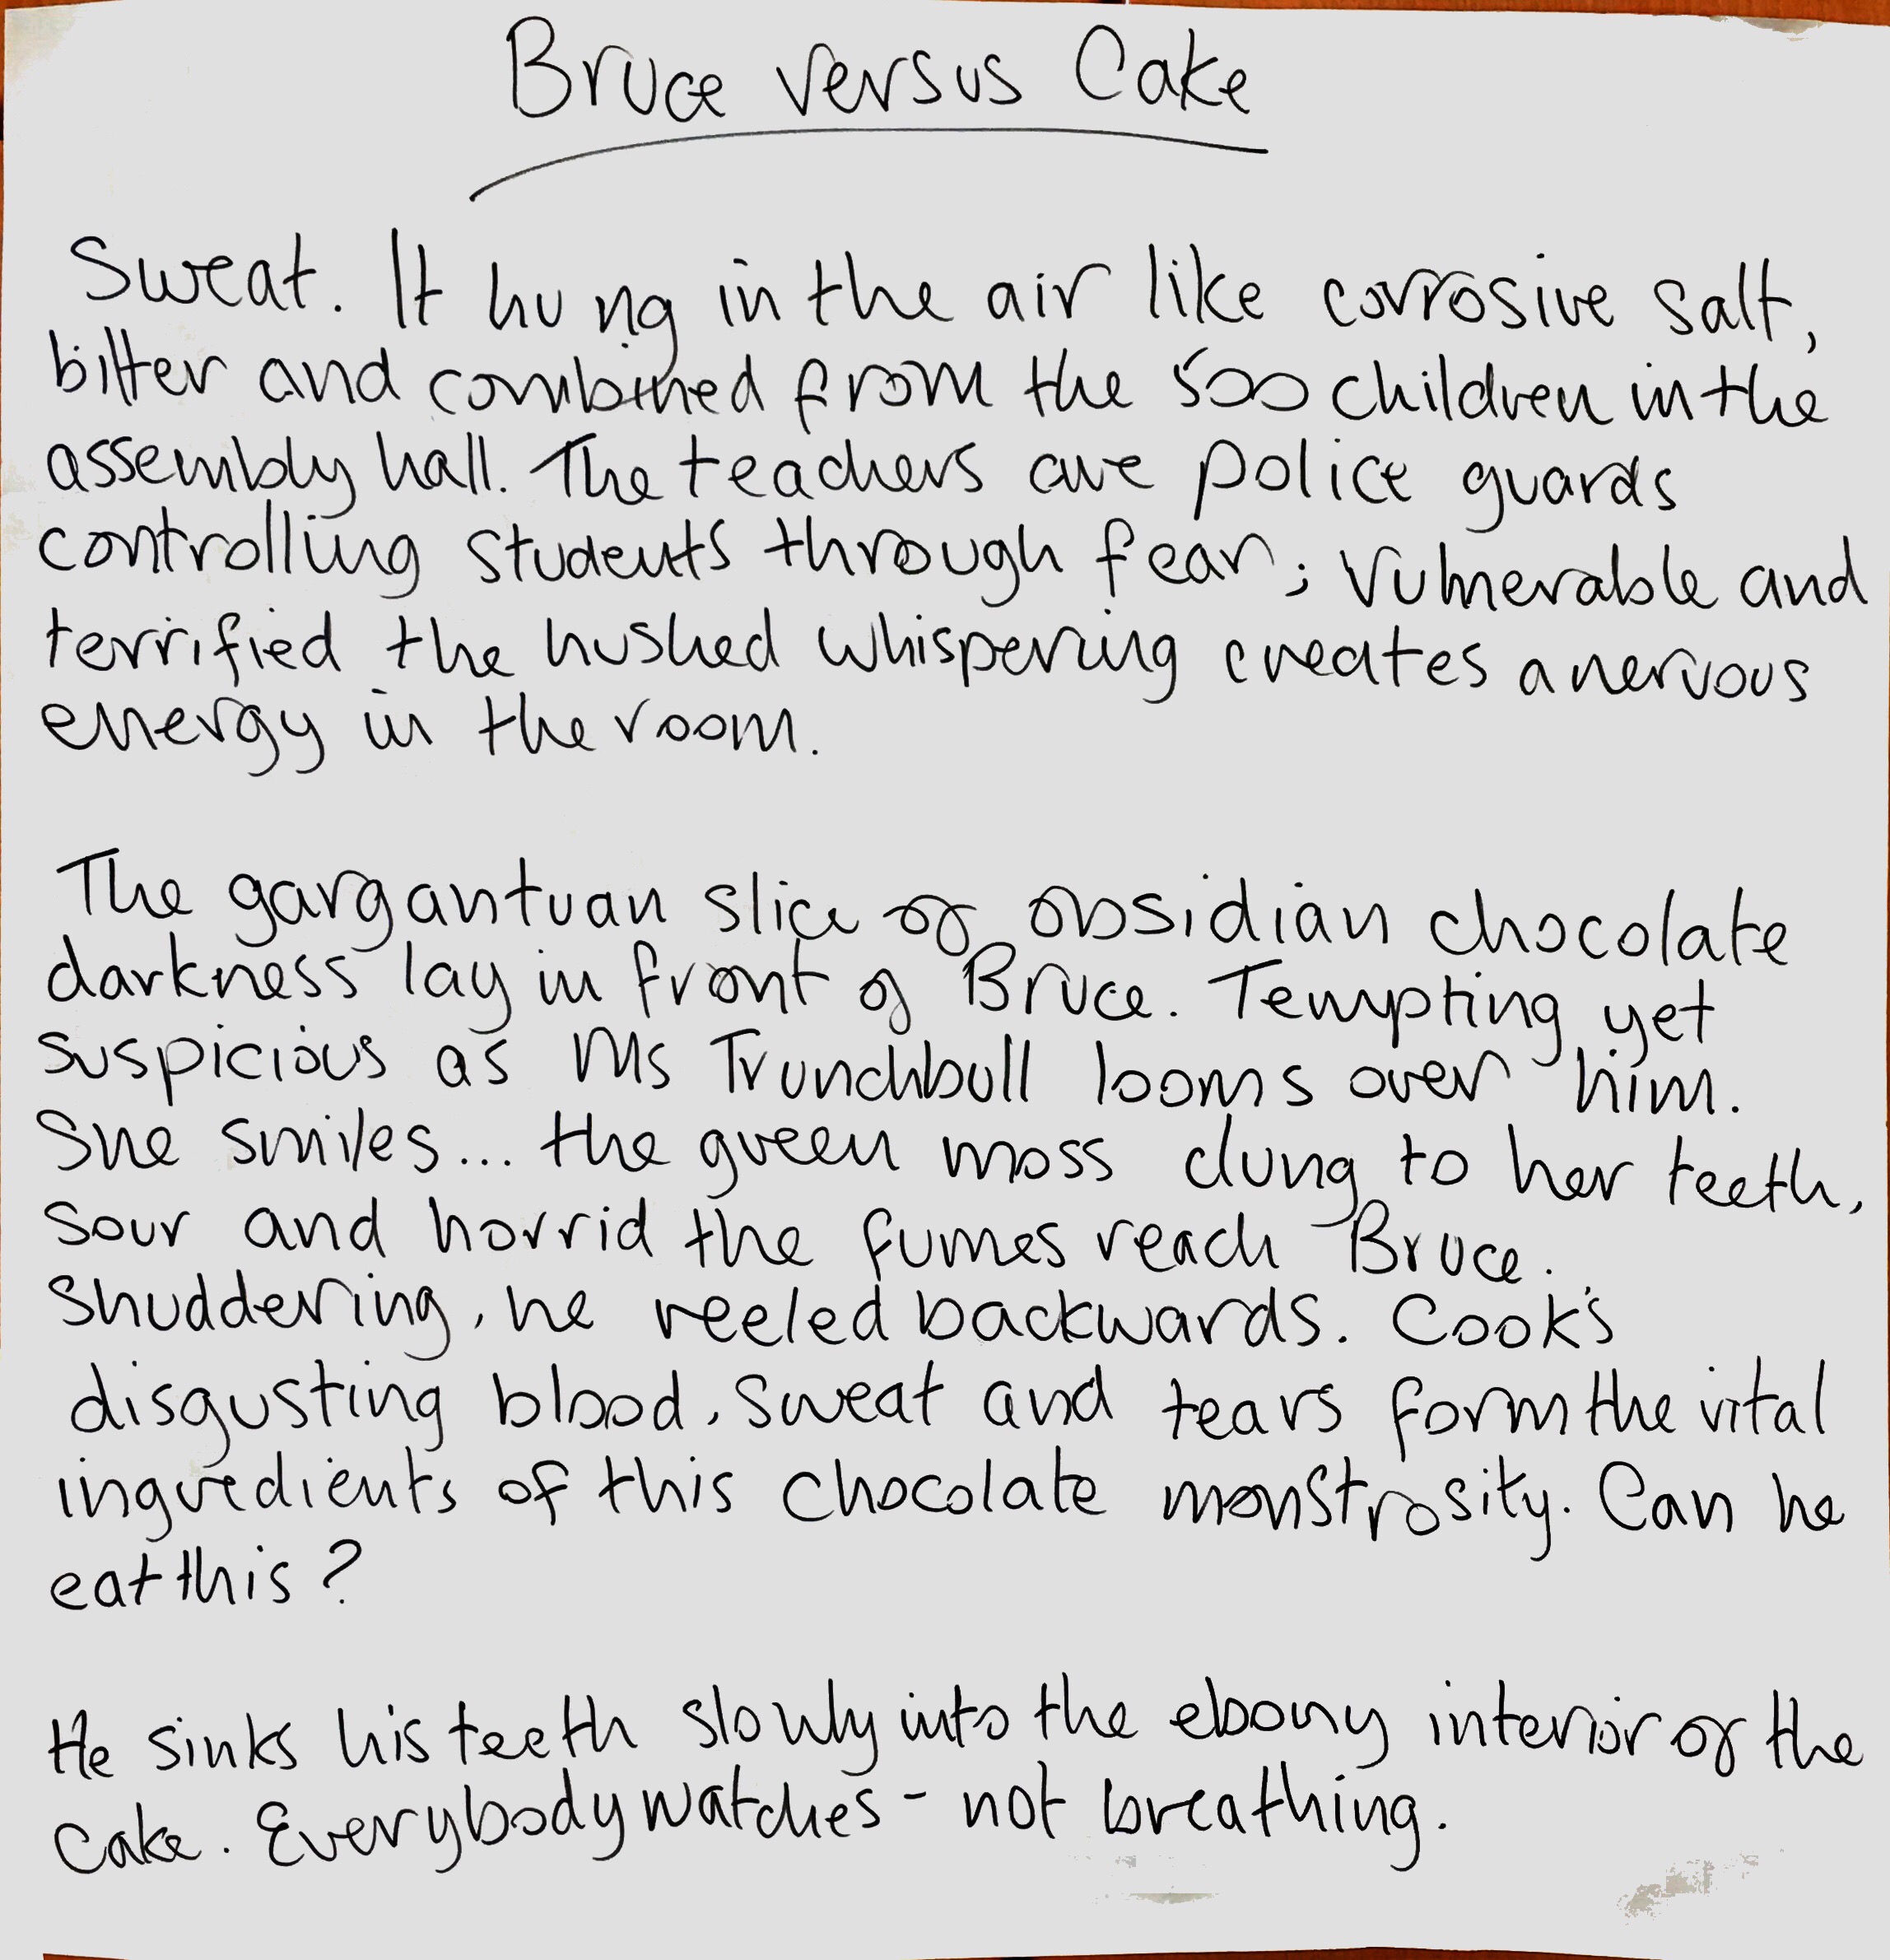 Bruce versus Cake
Sweat. It hung in the air like corrosive salt,
bitter and combined from the 500 children in the
assembly hall. The teachers are police guards
controlling students through fear; vulnerable and
terrified the hushed whispering creates a nervous
energy in the room.
The gargantuan slice of obsidian chocolate
darkness lay in front of Bruce. Tempting yet
suspicious as Ms Trunchbull looms over him.
She smiles... the green moss clung to her teeth,
sour and horrid the fumes reach Bruce.
Shuddering, he reeled backwards. Cook's
disgusting blood, sweat and tears form the vital
ingredients of this chocolate monstrosity. Can he
eat this?
He sinks his teeth slowly into the ebony interior of the
cake. Everybody watches - not breathing.